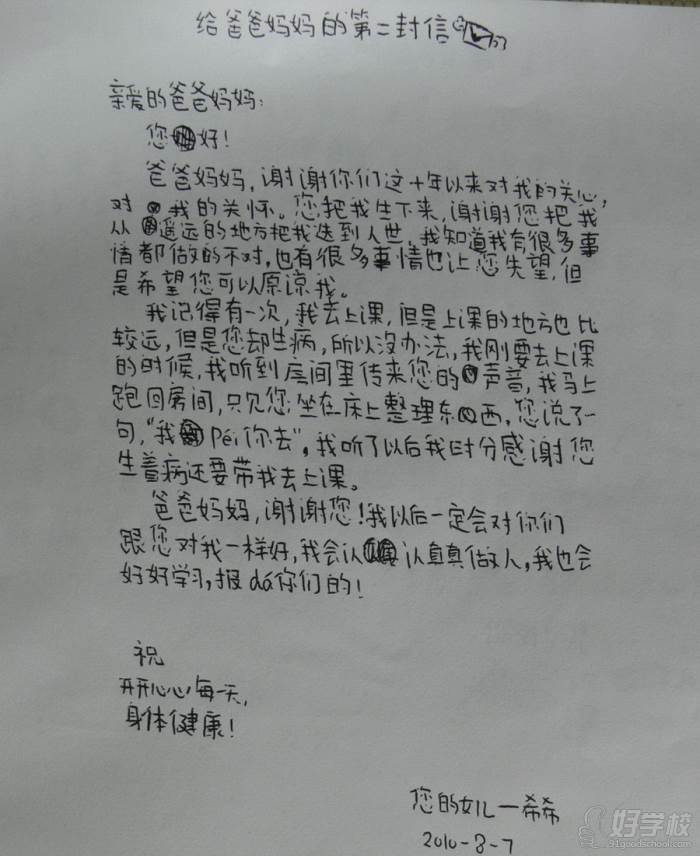 给爸爸妈妈的第二封信
亲爱的爸爸妈妈:
您好!
爸爸妈妈,谢谢你们这十年以来对我的关心,
对我的关怀。您把我生下来,谢谢您把我
从遥远的地方把我送到人世。我知道我有很多事
情都做的不对,也有很多事情也让您失望,但
是希望您可以原谅我。
我记得有一次,我去上课,但是上课的地方也比
较远,但是您却生病,所以没办法,我刚要去上课
的时候,我听到房间里传来您的声音,我马上
跑回房间,只见您坐在床上整理东西,您说了一
句,“我Péi你去”,我听了以后我时分感谢您
生着病还要带我去上课。
爸爸妈妈,谢谢您!我以后一定会对你们
跟您对我一样好,我会认认真真做人,我也会
好好学习,报dá你们的!
祝
开开心心每一天,
身体健康!
您的女儿—希希
2010-8-7
好学校
91goodschool.com